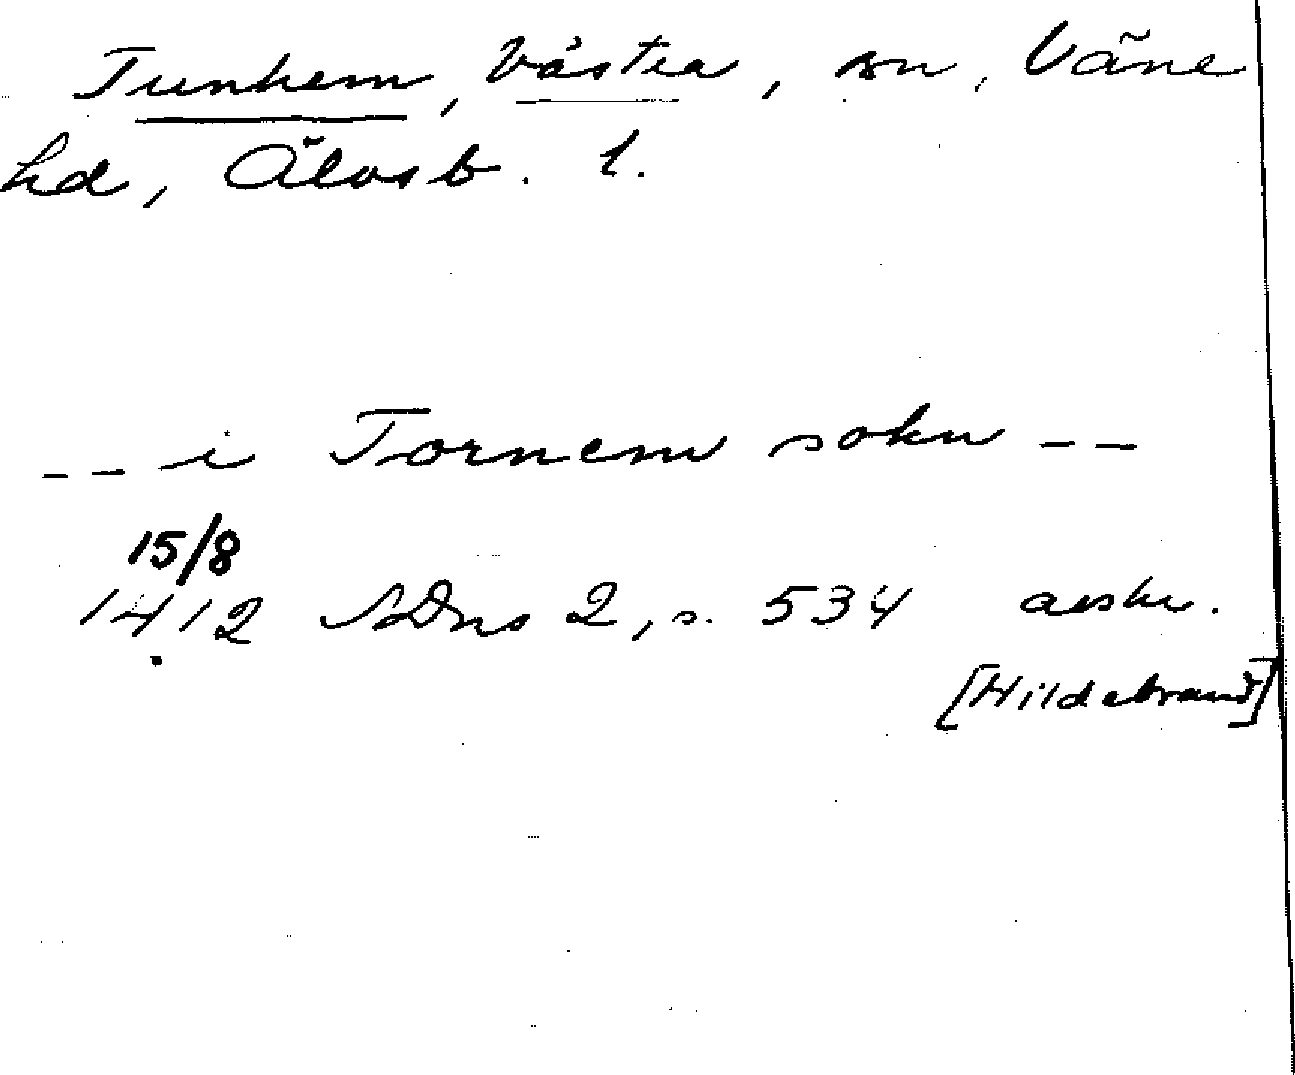 Tunhem, Västra, sn, Väne
hd, Älvsb. l.
-- i Tornem sokn --
15/8
1412 SDns 2, s. 534 avskr.
[Hildebrand]